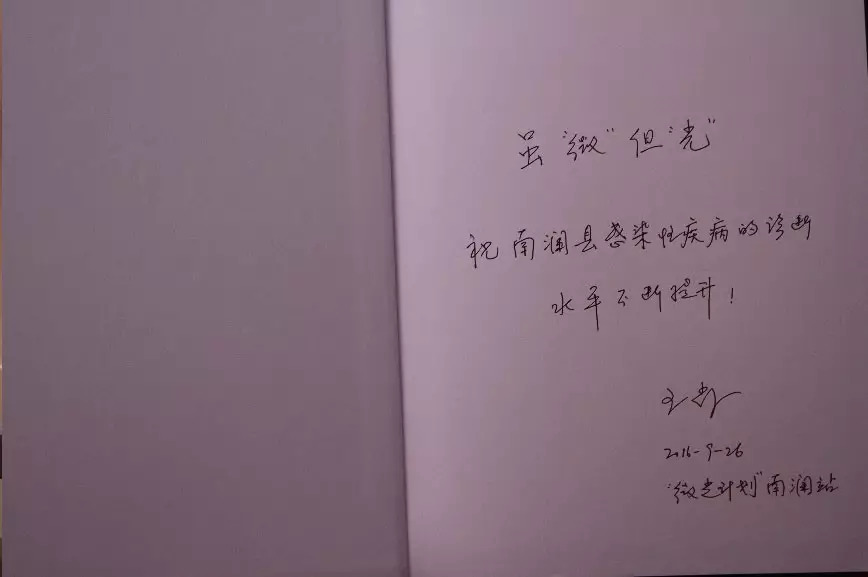 虽“微”但“光”
祝南澜县感染性疾病的诊断
水平不断提升!
2016-9-26
“微光计划”南澜站